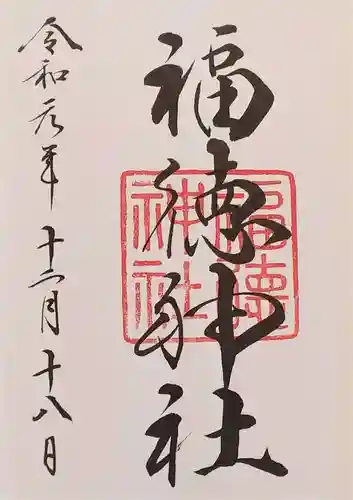 福徳神社
福徳神社
令和元年十二月十八日